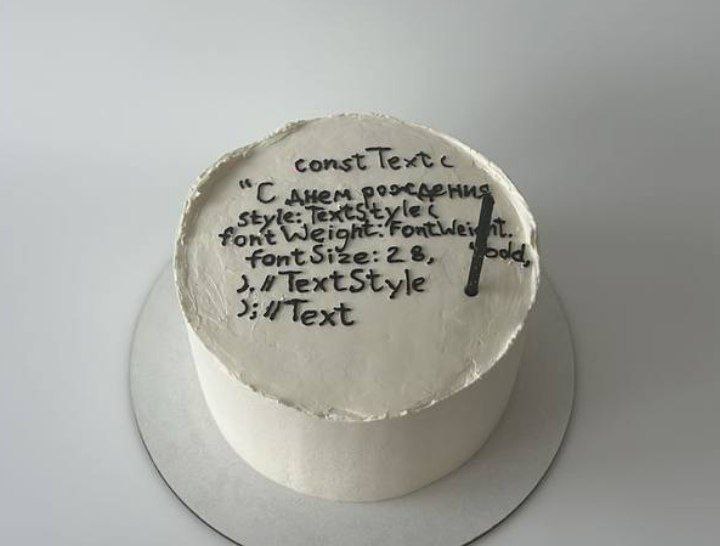 const Text (
"С днем рождения
style: TextStyle (
fontWeight: FontWeight.
fontSize: 28,
), // TextStyle
); // Text